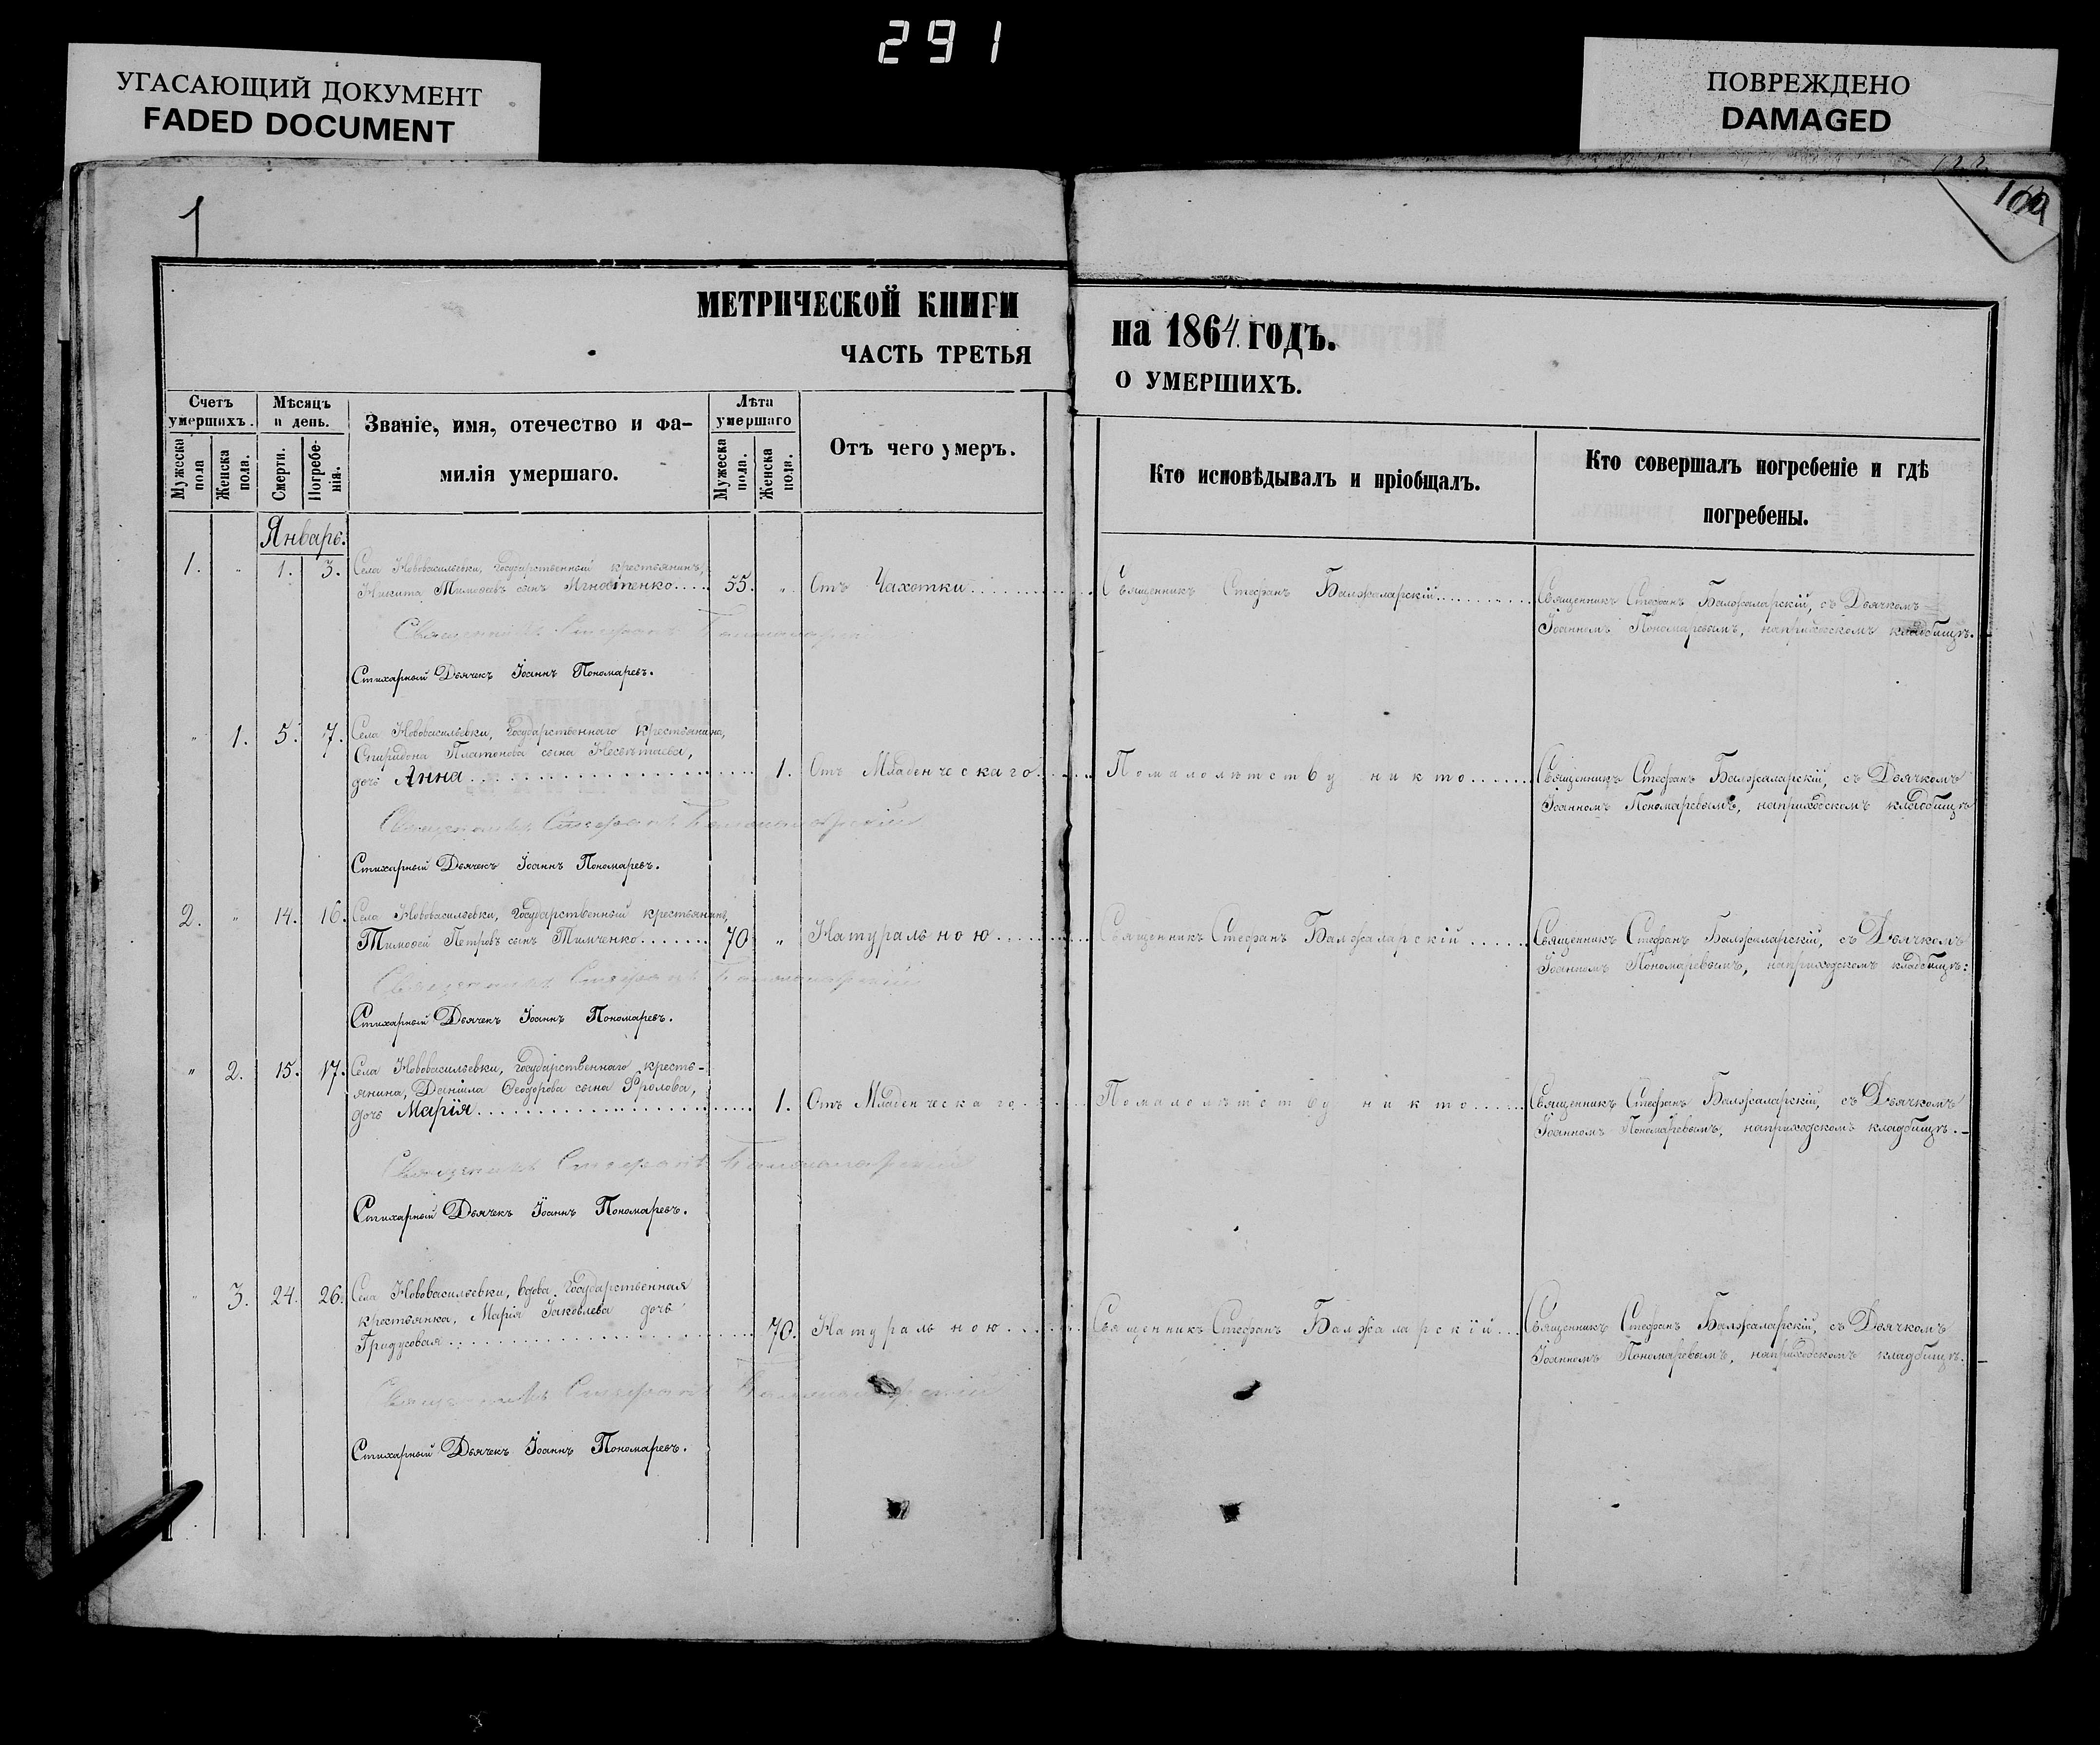 291
УГАСАЮЩИЙ ДОКУМЕНТ
FADED DOCUMENT
ПОВРЕЖДЕНО
DAMAGED
1
МЕТРИЧЕСКОЙ КНИГИ
ЧАСТЬ ТРЕТЬЯ
на 1864 годъ.
О УМЕРШИХЪ.
Счетъ умершихъ.
Мужеска пола
Женска пола.
Мѣсяцъ и день.
Смерти.
Погребенія.
Званіе, имя, отечество и фа-
милія умершаго.
Лѣта умершаго
Мужеска пола.
Женска пола.
Отъ чего умеръ.
Кто исповѣдывалъ и пріобщалъ.
Кто совершалъ погребеніе и гдѣ
погребены.
Январь.
1. " 1. 3. Села Нововасильевки, Государственный крестьянинъ,
Никита Тимофеевъ сынъ Игнатенко.... 55. " Отъ Чахотки
Священникъ Стефанъ Балжаларскій
Священникъ Стефанъ Балжаларскій, съ Дьячкомъ
Іоанномъ Пономаревымъ, наприходскомъ кладбищѣ.
Священникъ Стефанъ
Стихарный Дьячекъ Іоаннъ Пономаревъ.
" 1. 5. 7. Села Нововасильевки, Государственнаго крестьянина,
Спиридона Платонова сына Несвѣтаева,
дочь Анна 1. Отъ Младенческаго
Помалолѣтству никто
Священникъ Стефанъ Балжаларскій, съ Дьячкомъ
Іоанномъ Пономаревымъ, наприходскомъ кладбищѣ
Священникъ Стефанъ
Стихарный Дьячекъ Іоаннъ Пономаревъ.
2. " 14. 16. Села Нововасильевки, Государственный крестьянинъ,
Тимофей Петровъ сынъ Тимченко....... 70 " Натуральною
Священникъ Стефанъ Балжаларскій
Священникъ Стефанъ Балжаларскій, съ Дьячкомъ
Іоанномъ Пономаревымъ, наприходскомъ кладбищѣ:
Священникъ Стефанъ
Стихарный Дьячекъ Іоаннъ Пономаревъ.
" 2. 15. 17. Села Нововасильевки, Государственнаго кресть-
янина, Даніила Ѳеодорова сына Фролова,
дочь Марія 1. Отъ Младенческаго
Помалолѣтству никто
Священникъ Стефанъ Балжаларскій, съ Дьячкомъ
Іоанномъ Пономаревымъ, наприходскомъ кладбищѣ.
Священникъ Стефанъ
Стихарный Дьячекъ Іоаннъ Пономаревъ.
" 3. 24. 26. Села Нововасильевки, вдова Государственная
крестьянка, Марія Іаковлева дочь
70. Натуральною
Священникъ Стефанъ Балжаларскій
Священникъ Стефанъ Балжаларскій, съ Дьячкомъ
Іоанномъ Пономаревымъ, наприходскомъ кладбищѣ.
Священникъ Стефанъ
Стихарный Дьячекъ Іоаннъ Пономаревъ.